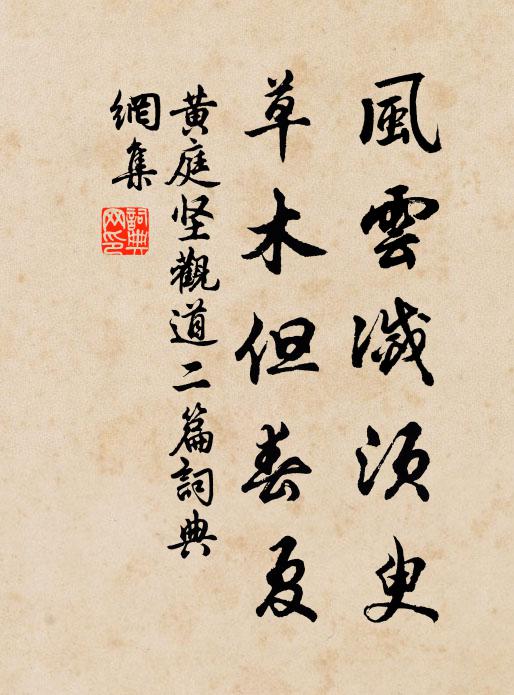 風雲滅須臾
草木但春夏
黄庭坚觀道二篇詞典
網集
詞典
网印